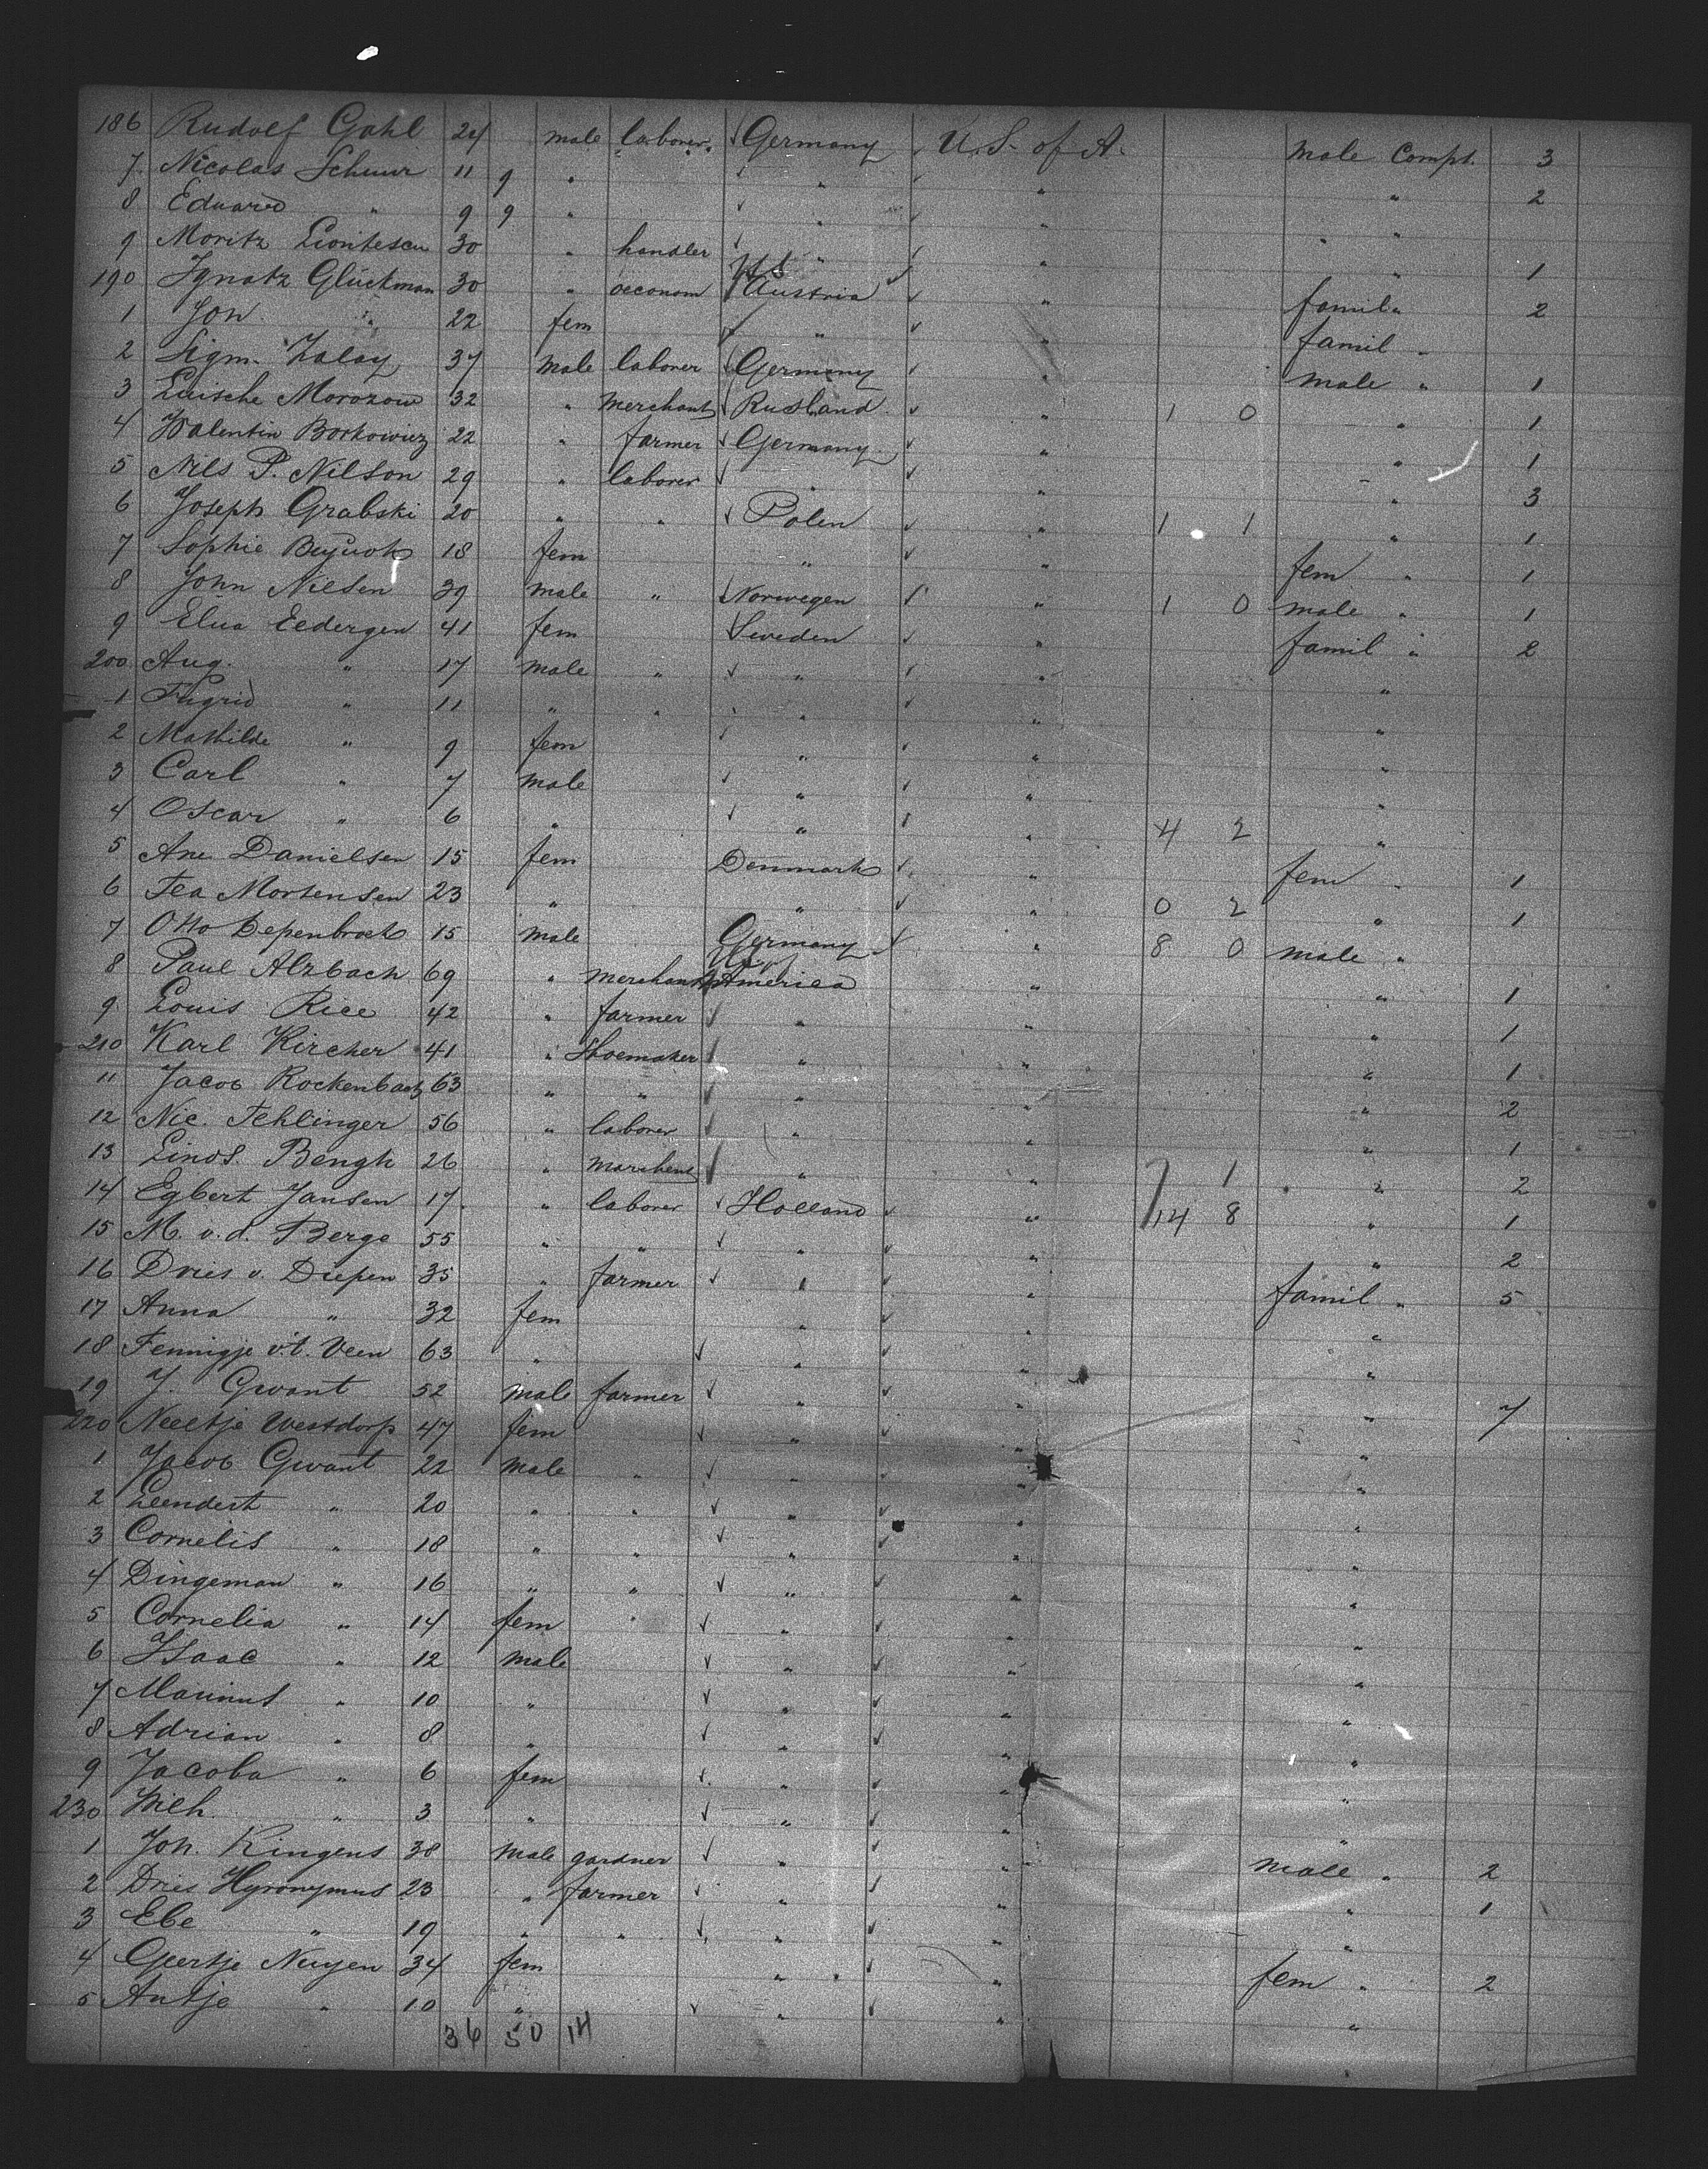 186 Rudolf Gahl 24 male laborer Germany U.S. of A. male Compt. 3
7 Nicolas Schuur 11 9 " " " " 2
8 Eduard " 9 9 " " " "
9 Moritz 30 " handler " " " 1
190 Ignatz Glückman 30 " oeconom U S Austria " famil " 2
1 Jon " 22 fem " " famil "
2 Sigm. Zalay 37 male laborer Germany " male " 1
3 Morozow 32 " merchant Rusland " 1 0 " 1
4 Valentin Borkowicz 22 " farmer Germany " " 1
5 Nils P. Nilson 29 " laborer " " " 3
6 Joseph Grabski 20 " " Polen " 1 1 " 1
7 Sophie 18 fem " " fem " 1
8 John Nielsen 39 male " Norwegen " 1 0 male " 1
9 Elna Eedergen 41 fem Sweden " famil " 2
200 Aug. " 17 male " " " "
1 Ingrid " 11 " " " " "
2 Mathilde " 9 fem " " "
3 Carl " 7 male " " "
4 Oscar " 6 " " " 4 2 "
5 Ane Danielsen 15 fem Denmark " fem " 1
6 Tea Mortensen 23 " " " 0 2 " 1
7 Otto Depenbrock 15 male Germany " 8 0 male "
8 Paul Alzbach 69 " merchant America " " 1
9 Louis Rice 42 " farmer " " " 1
210 Karl Kircher 41 " Shoemaker " " " 1
11 Jacob Rockenbach 63 " " " " " 2
12 Nic. Tehlinger 56 " laborer " " " 1
13 Bengh 26 " marchent " " 7 1 " 2
14 Egbert Jansen 17 " laborer Holland " 14 8 " 1
15 M. v. d. Berge 55 " " " " " 2
16 Dries v. Diepen 35 " farmer " " famil " 5
17 Anna " 32 fem " " "
18 Fennigje v.'t. Veen 63 " " " "
19 J. Gwant 52 male farmer " " " 7
220 Neeltje Westdorp 47 fem " " "
1 Jacob Gwant 22 male " " " "
2 Leendert " 20 " " " " "
3 Cornelis " 18 " " " " "
4 Dingeman " 16 " " " " "
5 Cornelia " 14 fem " " " "
6 Isaac " 12 male " " "
7 Marinus " 10 " " " "
8 Adrian " 8 " " " "
9 Jacoba " 6 fem " " "
230 Wilh. " 3 " " " "
1 Joh. Ringens 38 male gardner " " male " 2
2 Dries Hyronymus 23 " farmer " " " 1
3 Ebe " 19 " " " " "
4 Geertje Nuyen 34 fem " " fem " 2
5 Antje " 10 " " " "
36 50 14